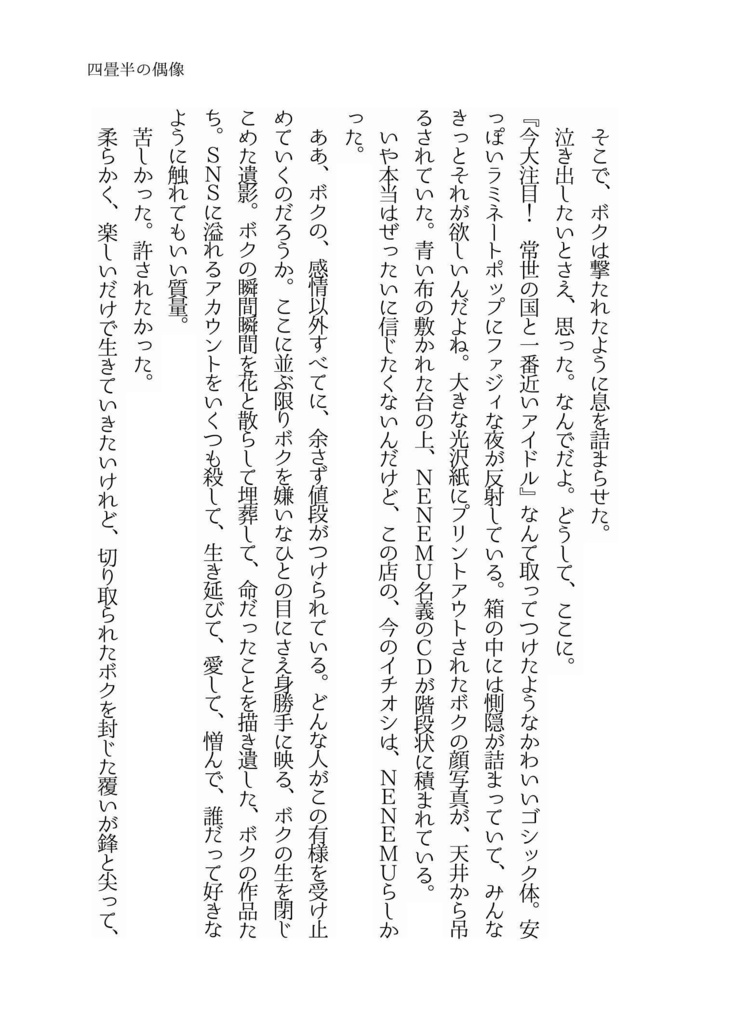 四畳半の偶像
そこで、ボクは撃たれたように息を詰まらせた。
泣き出したいとさえ、思った。なんでだよ。どうして、ここに。
『今大注目！　常世の国と一番近いアイドル』なんて取ってつけたようなかわいいゴシック体。安
っぽいラミネートポップにファジィな夜が反射している。箱の中には惻隠が詰まっていて、みんな
きっとそれが欲しいんだよね。大きな光沢紙にプリントアウトされたボクの顔写真が、天井から吊
るされていた。青い布の敷かれた台の上、ＮＥＮＥＭＵ名義のＣＤが階段状に積まれている。
いや本当はぜったいに信じたくないんだけど、この店の、今のイチオシは、ＮＥＮＥＭＵらしか
った。
ああ、ボクの、感情以外すべてに、余さず値段がつけられている。どんな人がこの有様を受け止
めていくのだろうか。ここに並ぶ限りボクを嫌いなひとの目にさえ身勝手に映る、ボクの生を閉じ
こめた遺影。ボクの瞬間瞬間を花と散らして埋葬して、命だったことを描き遺した、ボクの作品た
ち。ＳＮＳに溢れるアカウントをいくつも殺して、生き延びて、愛して、憎んで、誰だって好きな
ように触れてもいい質量。
苦しかった。許されたかった。
柔らかく、楽しいだけで生きていきたいけれど、切り取られたボクを封じた覆いが鋒と尖って、